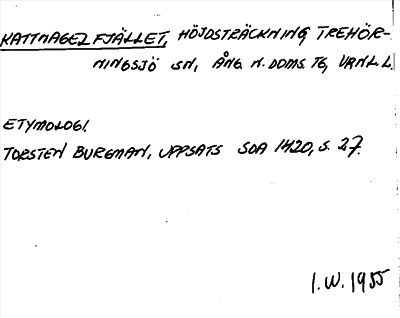 KATTNAGEL FJÄLLET, HÖJDSTRÄCKNING TREHÖR-
NINGSJÖ SN, ÅNG. N. DOMS. TG, VRNL L.
ETYMOLOGI.
TORSTEN BURGMAN, UPPSATS SOA 1420, S. 27.
I.W. 1955